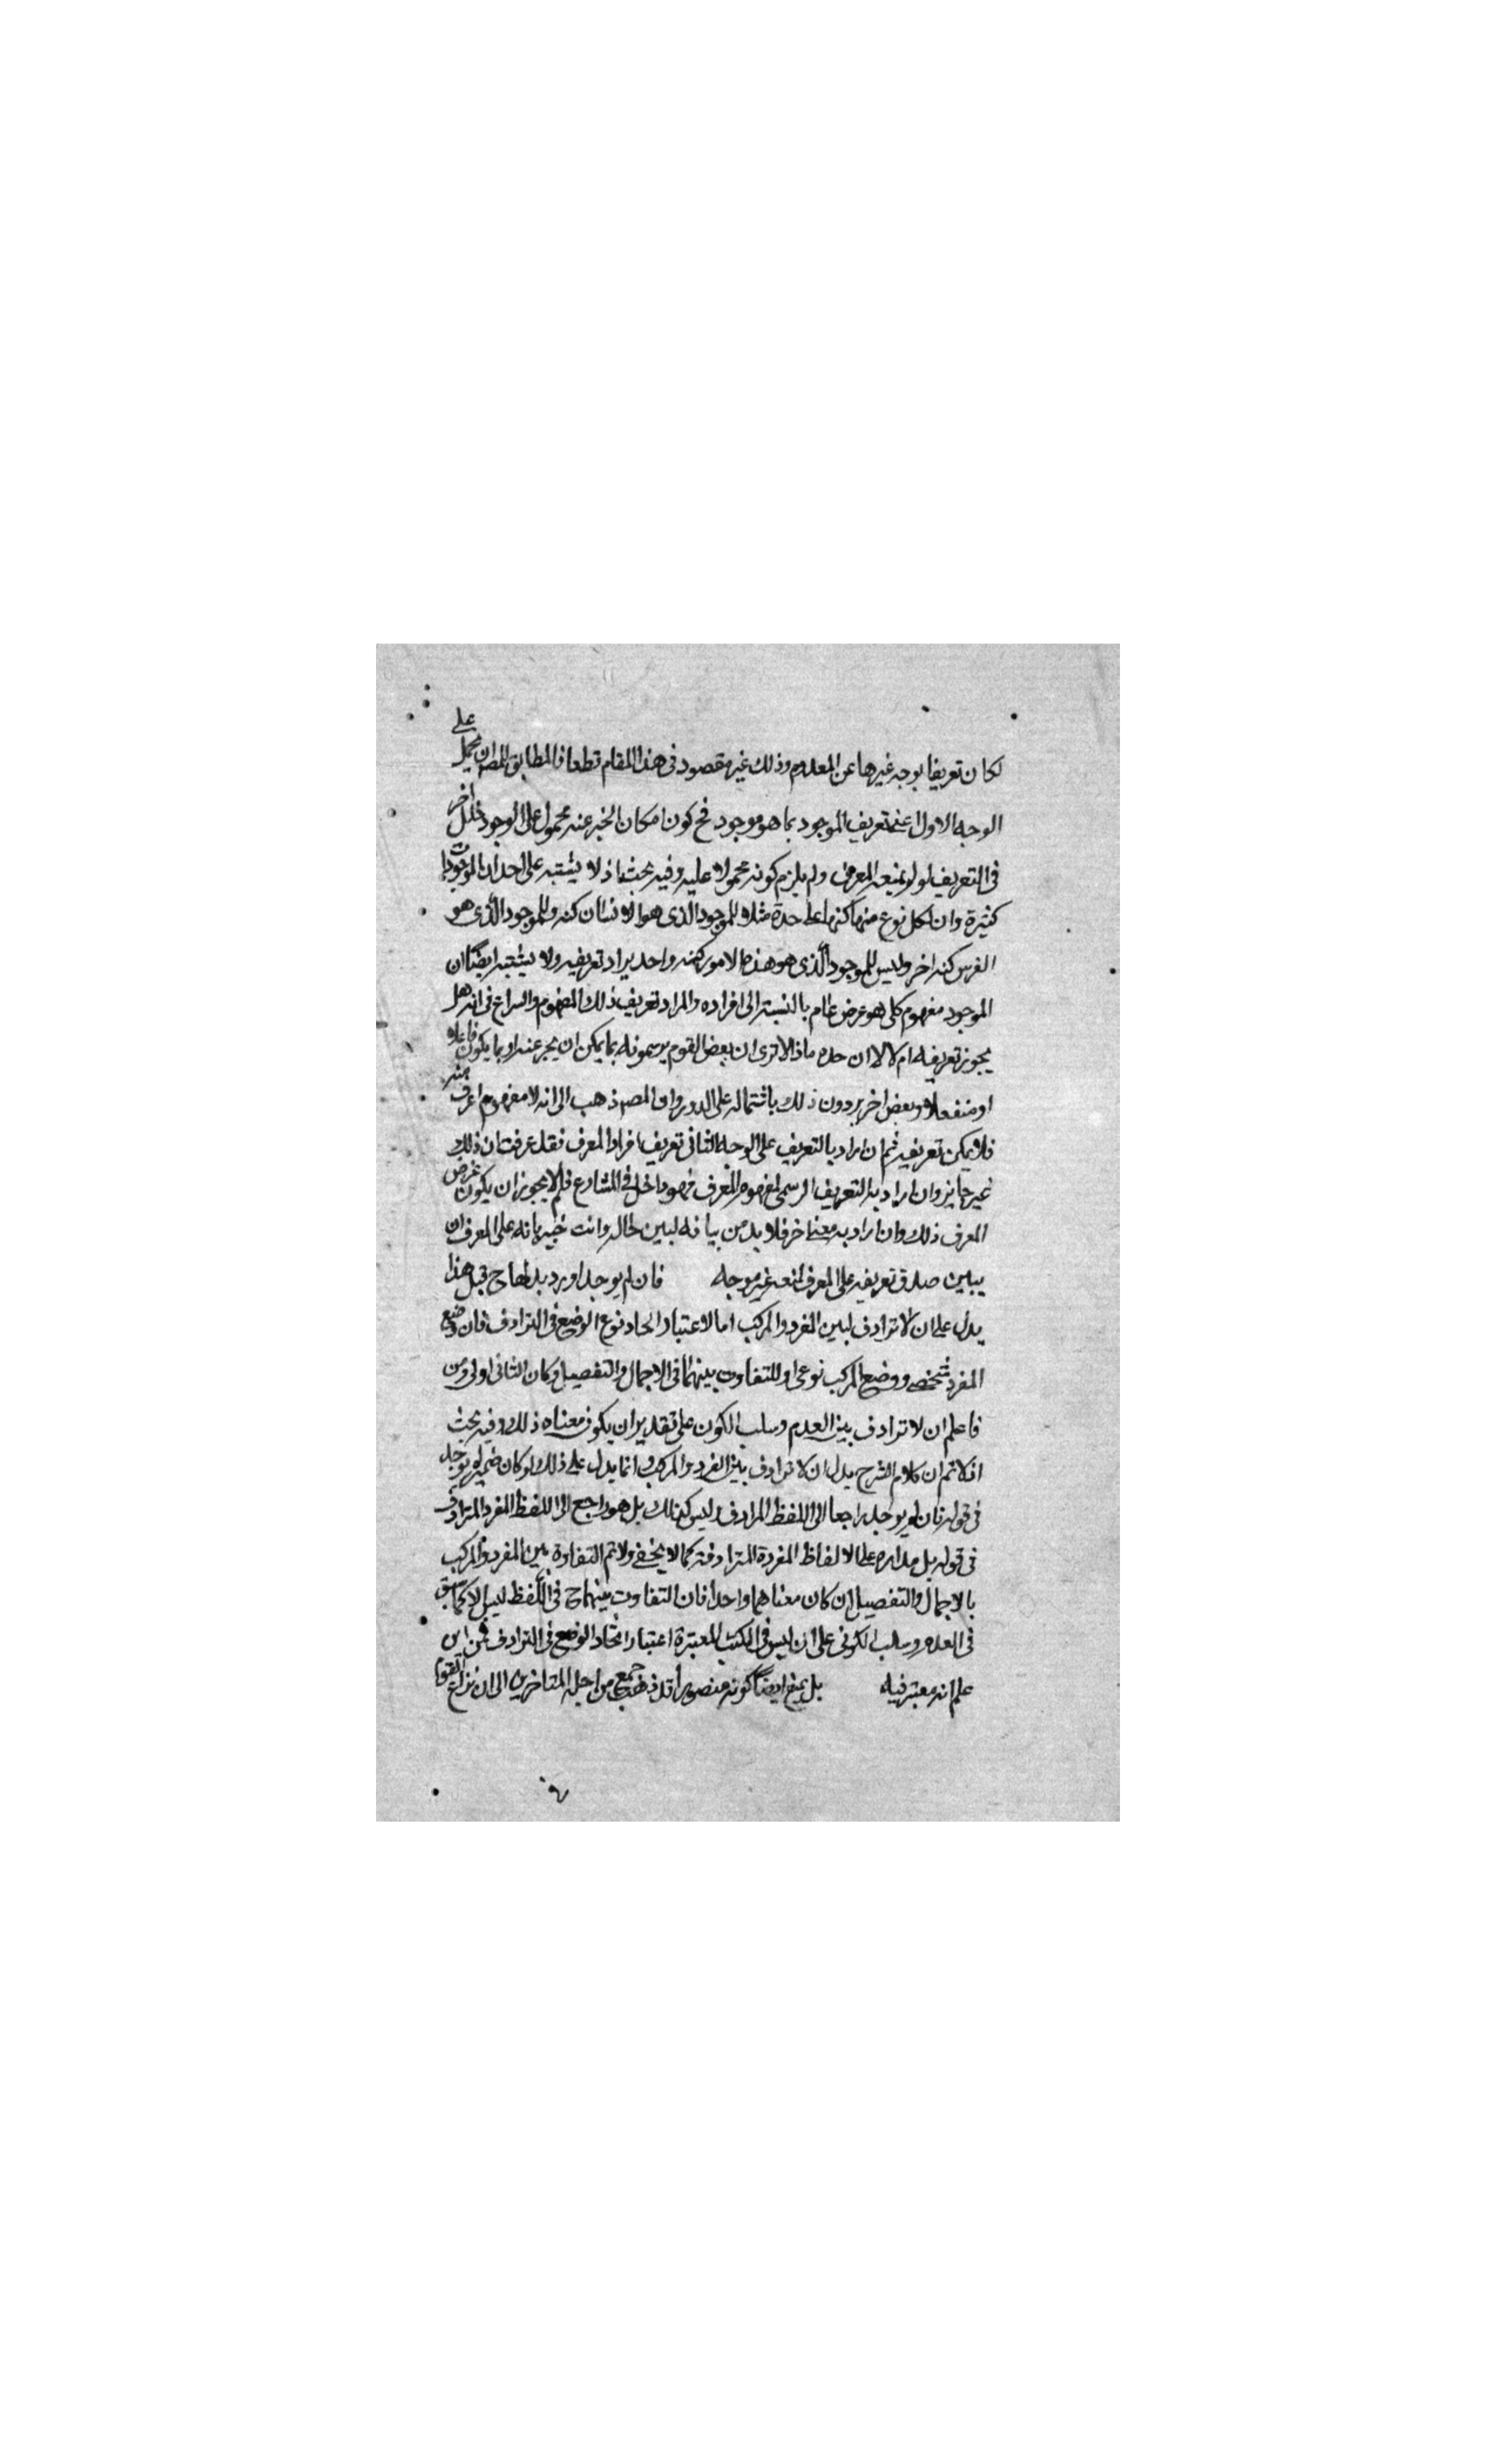 لكان تعريفا بوجه غيرها عن المعدوم وذلك غير مقصود فى هذا المقام قطعا فالمطابق للمص ان يحمل على
الوجه الاول اعنى تعريف الموجود بما هو موجود فح كون امكان الخبر عنه محمولا على الوجود خلل اخر
فى التعريف لو لم يمنعه المعرض ولم يلزم كونه محمولا عليه وفيه بحث اذ لا يشتبه على احد ان الموجودات
كثيرة وان لكل نوع منها كنها على حدة مثلا للموجود الذى هو الانسان كنه وللموجود الذى هو
الفرس كنه اخر وليس للموجود الذى هو هذه الامور كنه واحد يراد تعريفه ولا يشتبه ايضا ان
الموجود مفهوم كلى هو عرض عام بالنسبة الى افراده والمراد تعريف ذلك المفهوم والنزاع فى انه هل
يجوز تعريفه ام لا لا ان حده ماذا الا ترى ان بعض القوم يرسمونه بما يمكن ان يخبر عنه او بما يكون فاعلا
او منفعلا وبعض اخر يردون ذلك باشتماله على الدور وان المص ذهب الى انه لا مفهوم اعرف منه
فلا يمكن تعريفه ثم ان اراد بالتعريف على الوجه الثانى تعريف افراد المعرف فقد عرفت ان ذلك
غير جايز وان اراد به التعريف الرسمى لمفهوم المعرف فهو داخل فى الشارع فلم لا يجوز ان يكون غرض
المعرف ذلك وان اراد به معنى اخر فلا بد من بيانه لبين حاله وانت خبير بانه على المعرف ان
يبين صدق تعريفه على المعرف فمنعه غير موجه فان لم يوجد اورد بدلها ح قبل هذا
يدل على ان لا ترادف لبين المفرد والمركب اما لاعتبار اتحاد نوع الوضع فى الترادف فان وضع
المفرد شخصى ووضع المركب نوعى او للتفاوت بينهما فى الاجمال والتفصيل وكان الثانى اولى ومن
فاعلم ان لا ترادف بين العدم وسلب الكون على تقدير ان يكون معناه ذلك وفيه بحث
اذ لا تم ان كلام الشرح يدل ان لا ترادف بين المفرد والمركب وانما يدل على ذلك لو كان ضمير لم يوجد
فى قوله فان لم يوجد راجعا الى اللفظ المرادف وليس كذلك بل هو راجع الى اللفظ المفرد المترادف
فى قوله بل مداره على الالفاظ المفردة المترادفة كما لا يخفى ولا تم التفاوة بين المفرد والمركب
بالاجمال والتفصيل ان كان معناهما واحدا فان التفاوت بينهما ح فى اللفظ ليس الا كما سبق
فى العدم وسلب الكون على ان ليس فى الكتب المعتبرة اعتبار اتحاد الوضع فى الترادف فمن اين
علم انه معتبر فيه بل يمنع ايضا كونه متصورا قد ذهب جمع من اجلة المتاخرين الى ان نزاع القوم